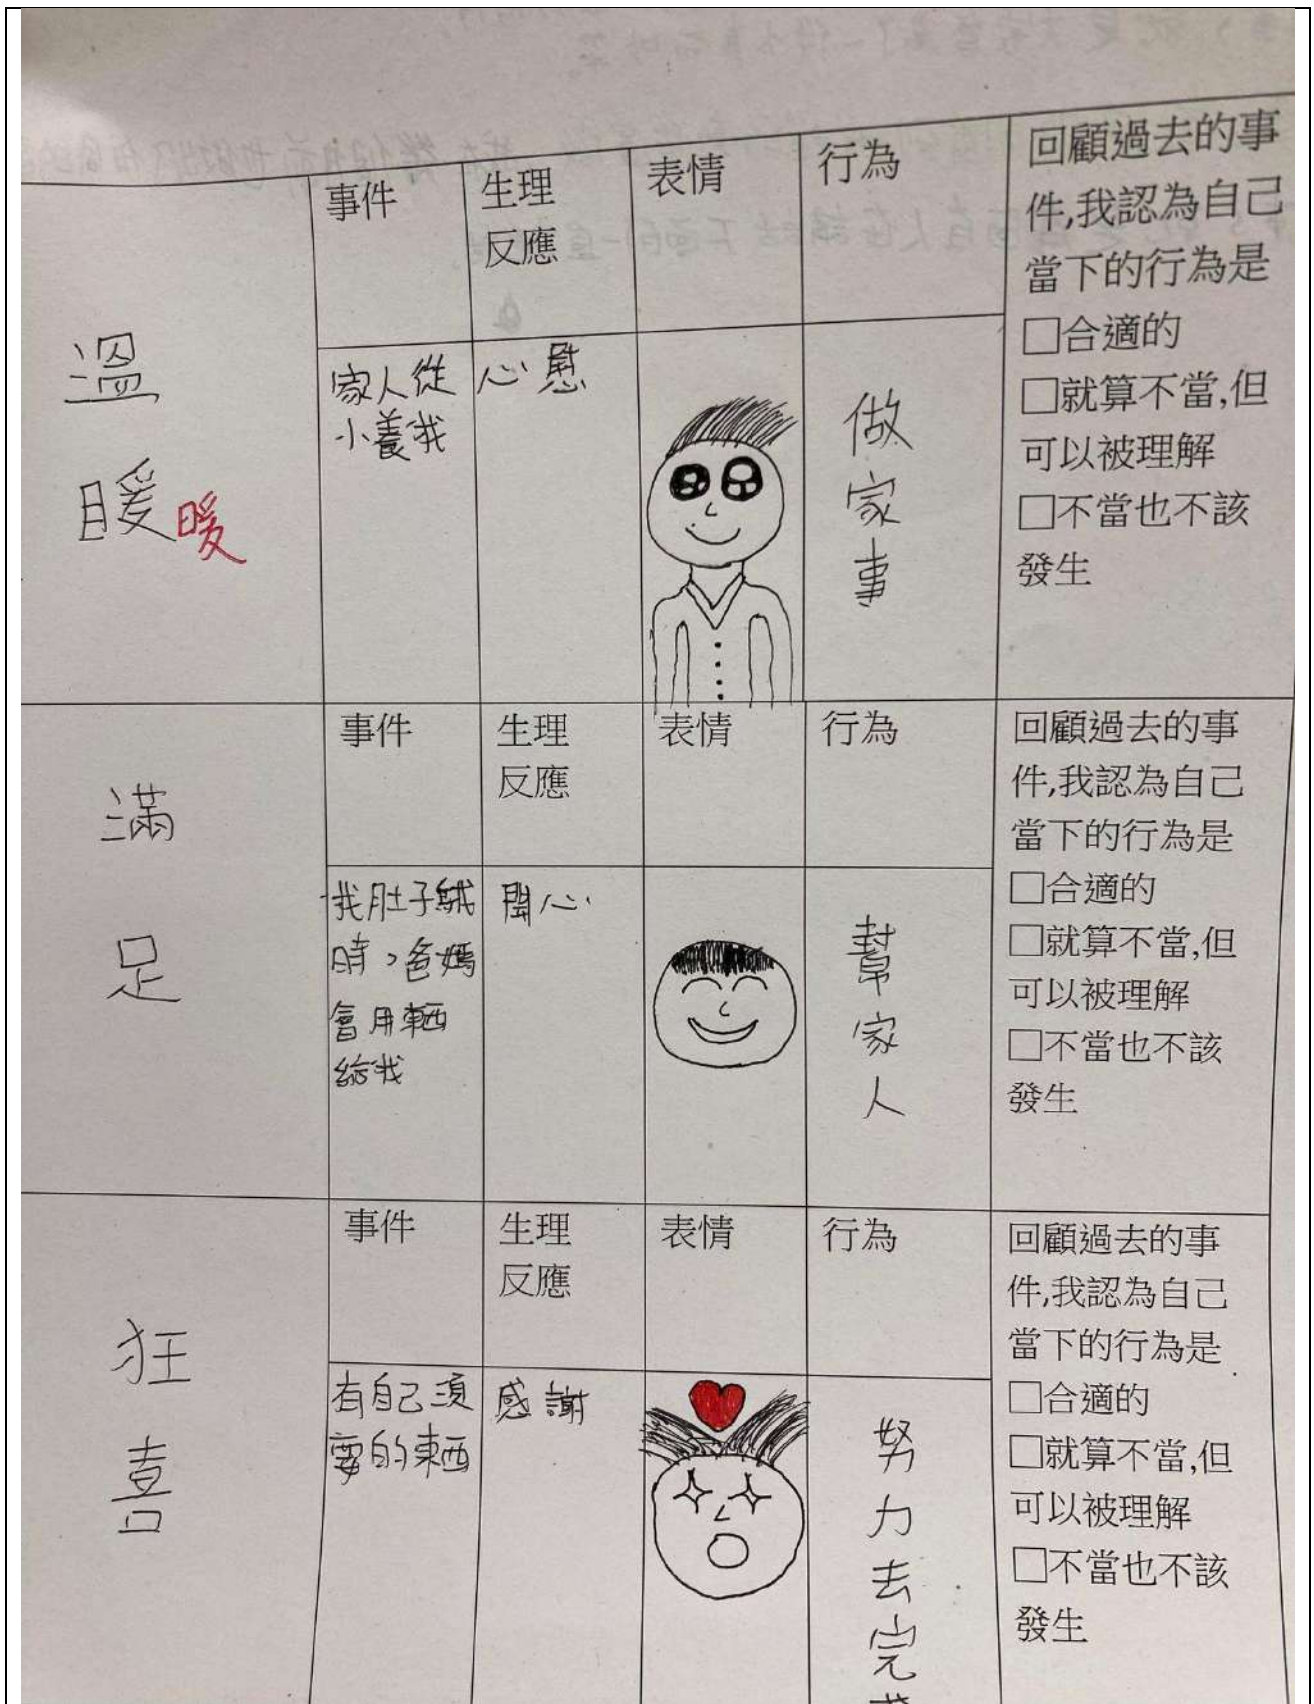 溫
暖 暖
事件
生理
反應
表情
行為
回顧過去的事
件,我認為自己
當下的行為是
□合適的
□就算不當,但
可以被理解
□不當也不該
發生
家人從
小養我
心慰
做
家
事
滿
足
事件
生理
反應
表情
行為
回顧過去的事
件,我認為自己
當下的行為是
□合適的
□就算不當,但
可以被理解
□不當也不該
發生
我肚子餓
時,爸媽
會用東西
給我
開心
幫
家
人
狂
喜
事件
生理
反應
表情
行為
回顧過去的事
件,我認為自己
當下的行為是
□合適的
□就算不當,但
可以被理解
□不當也不該
發生
有自己須
要的東西
感謝
努
力
去
完